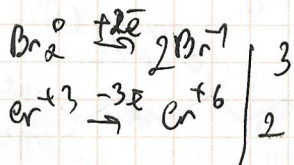 Br₂⁰ +2ē → 2Br⁻¹ | 3
Cr⁺³ -3ē → Cr⁺⁶ | 2